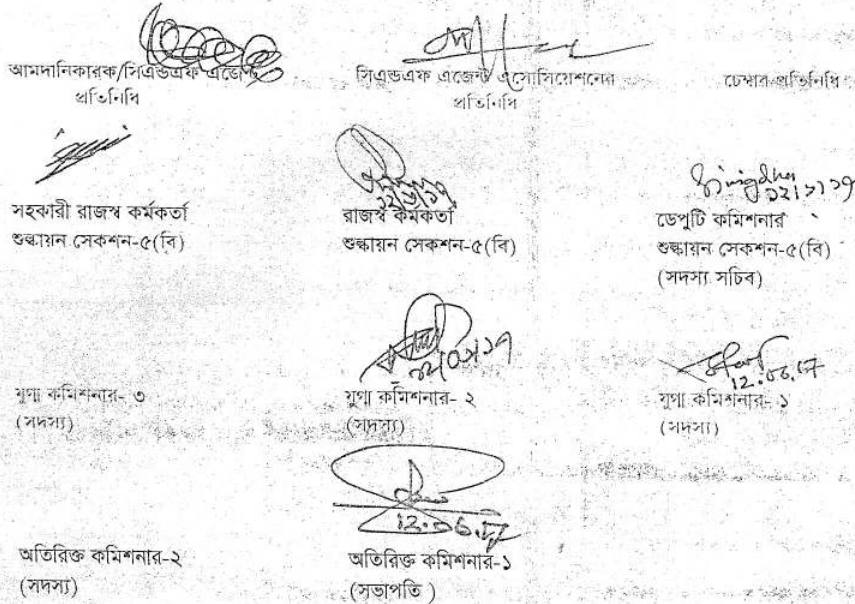 আমদানিকারক/সিএন্ডএফ এজেন্ট
প্রতিনিধি
সিএন্ডএফ এজেন্ট এসোসিয়েশনের
প্রতিনিধি
চেম্বার প্রতিনিধি
সহকারী রাজস্ব কর্মকর্তা
শুল্কায়ন সেকশন-৫(বি)
রাজস্ব কর্মকর্তা
শুল্কায়ন সেকশন-৫(বি)
ডেপুটি কমিশনার
শুল্কায়ন সেকশন-৫(বি)
(সদস্য সচিব)
যুগ্ম কমিশনার- ৩
(সদস্য)
যুগ্ম কমিশনার- ২
(সদস্য)
12.06.17
যুগ্ম কমিশনার- ১
(সদস্য)
অতিরিক্ত কমিশনার-২
(সদস্য)
12.06.17
অতিরিক্ত কমিশনার-১
(সভাপতি )